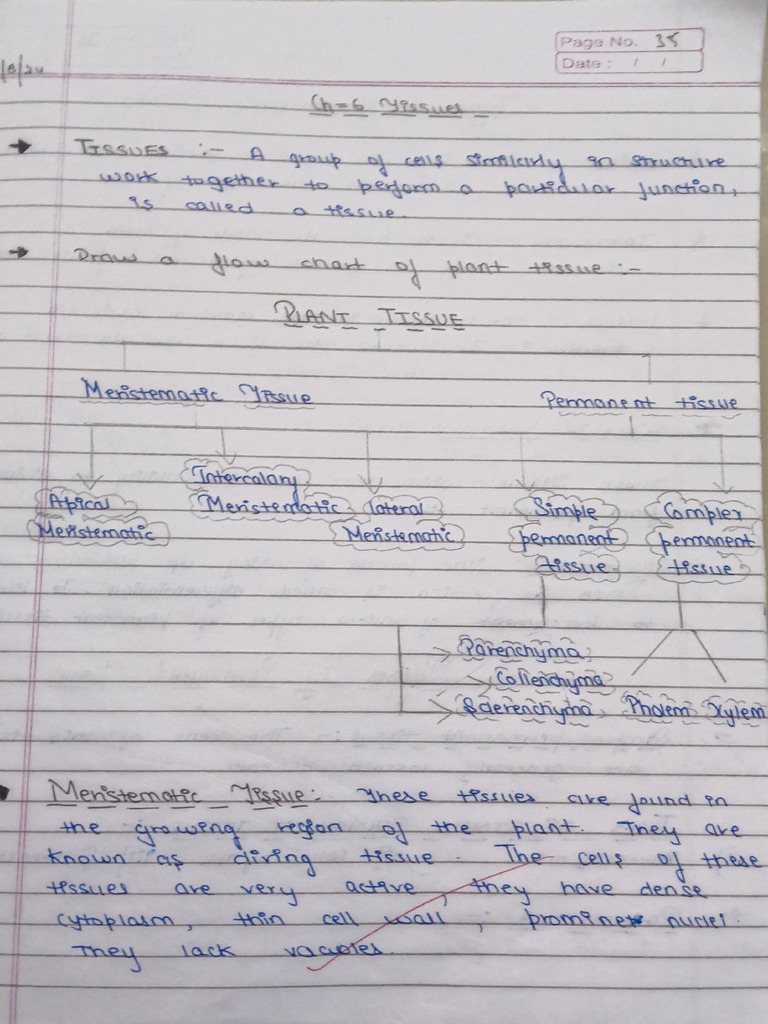 Page No. 35
Date : / /
/8/24
Ch=6 Tissues
→ TISSUES :- A group of cells similarly in structure
work together to perform a particular junction,
is called a tissue.
→ Draw a flow chart of plant tissue :-
PLANT TISSUE
Meristematic Tissue Permanent tissue
Apical Meristematic
Intercalary Meristematic
lateral Meristematic
Simple permanent tissue
Complex permanent tissue
Parenchyma
Collenchyma
Sclerenchyma Phloem Xylem
Meristematic Tissue: These tissues are found in
the growing region of the plant. They are
known as diving tissue. The cells of these
tissues are very active, they have dense
cytoplasm, thin cell wall, prominent nuclei.
They lack vacuoles.